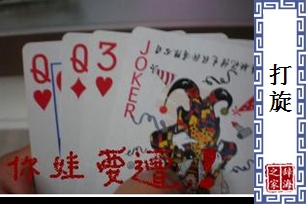 Q
Q
3
JOKER
你娃要遭!
打旋
辞海之家